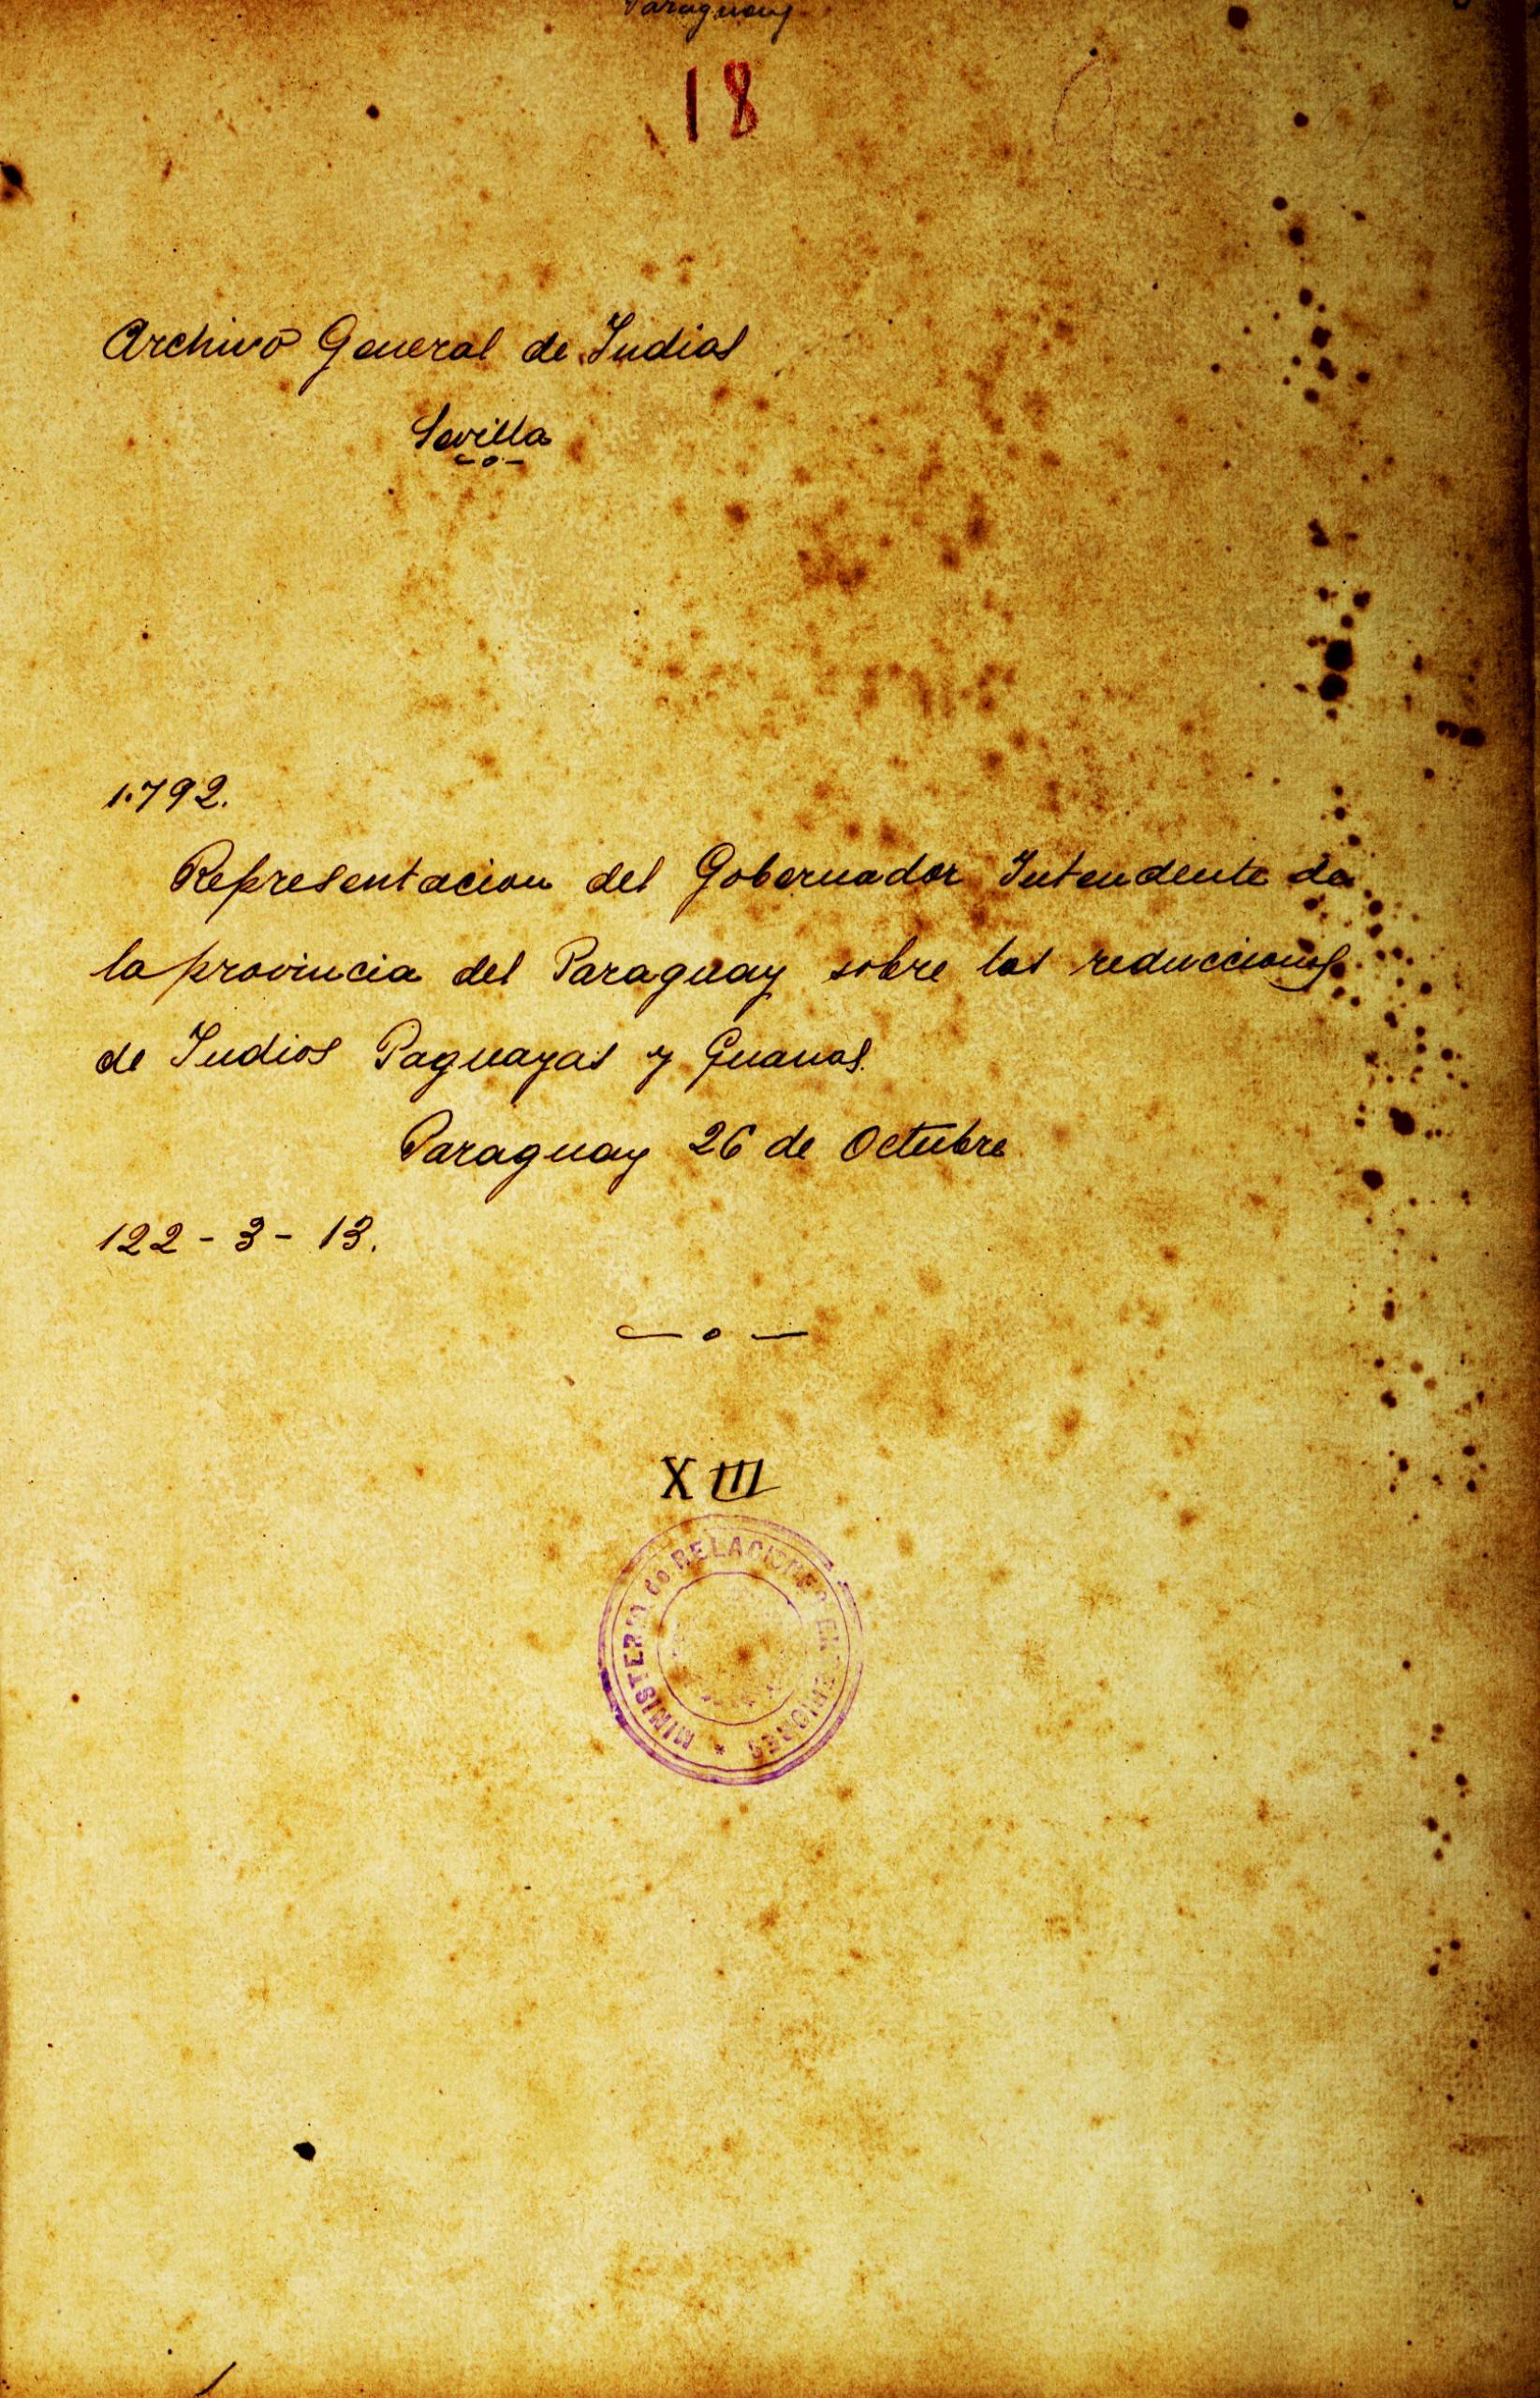 Paraguay
18
Archivo General de Indias
Sevilla
1.792.
Representacion del Gobernador Intendente de
la provincia del Paraguay sobre las reducciones
de Indios Paguayas y Guanas.
Paraguay 26 de Octubre
122 - 3 - 13.
XIII
MINISTERIO de RELACIONES EXTERIORES